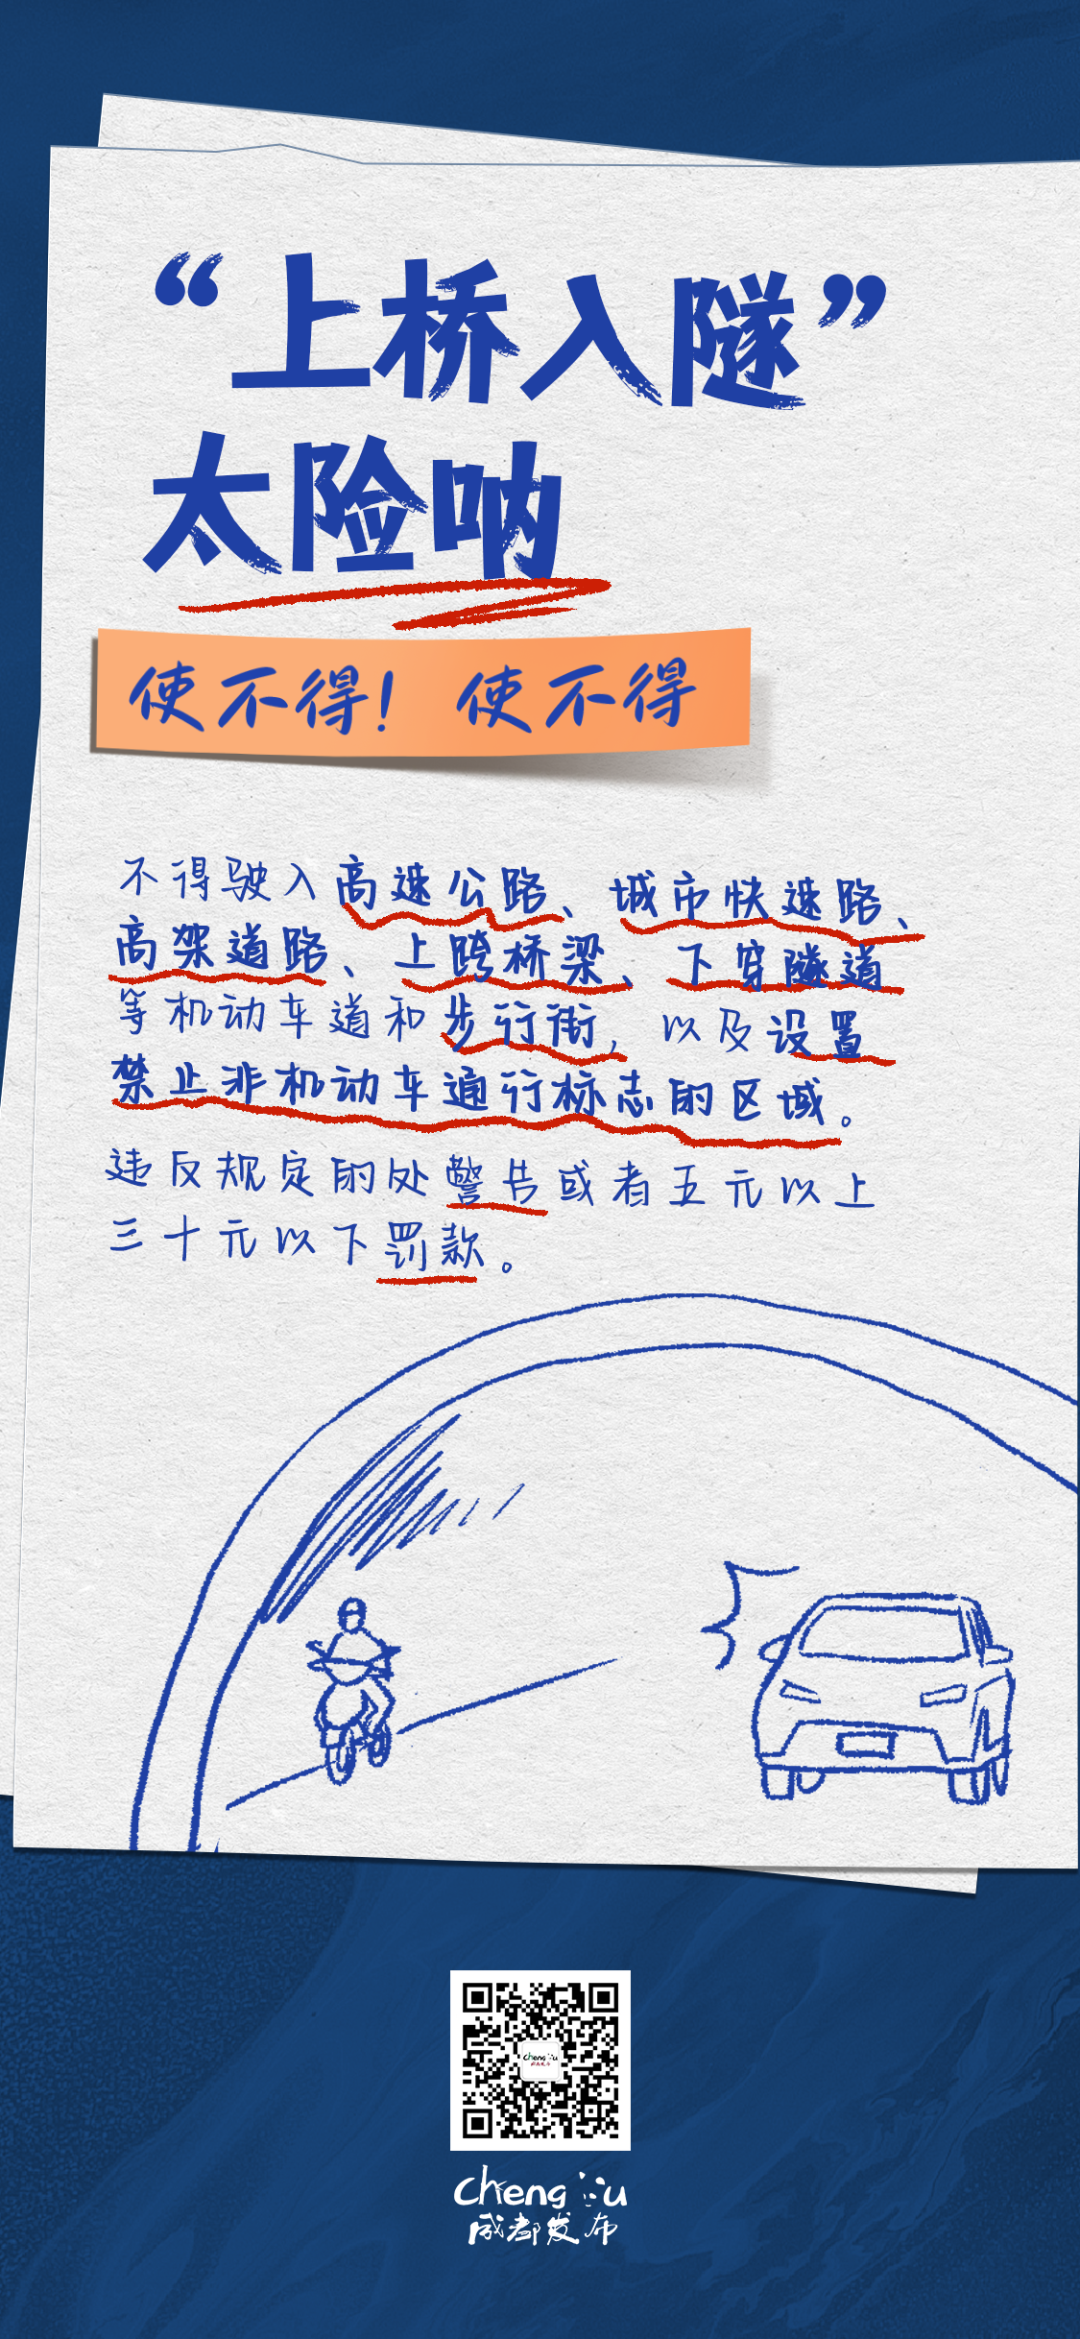 “上桥入隧”
太险呐
使不得! 使不得
不得驶入高速公路、城市快速路、
高架道路、上跨桥梁、下穿隧道
等机动车道和步行街，以及设置
禁止非机动车通行标志的区域。
违反规定的处警告或者五元以上
三十元以下罚款。
Chengdu
成都发布